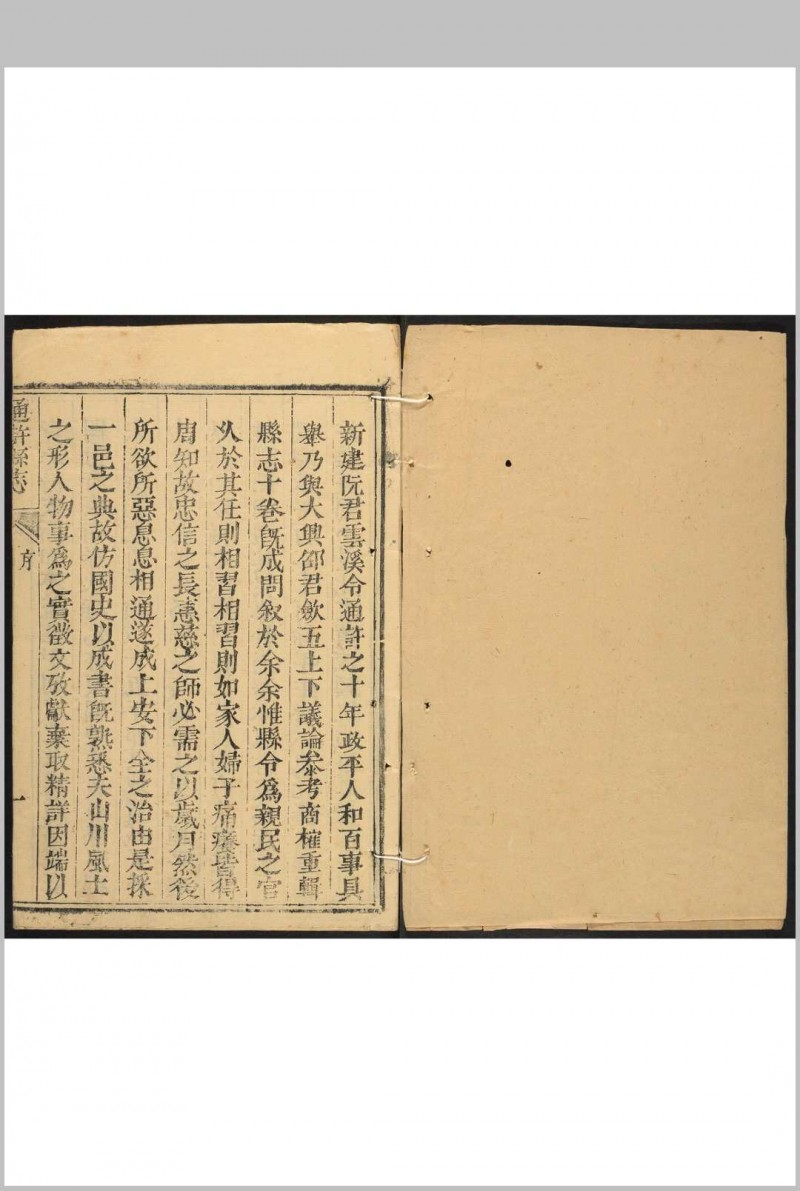 新建阮君雲溪令通許之十年政平人和百事具
舉乃與大興邵君斂五上下議論叅考商榷重輯
縣志十卷旣成問叙於余余惟縣令爲親民之官
久於其任則相習相習則如家人婦子痛癢皆得
周知故忠信之長惠慈之師必需之以歲月然後
所欲所惡息息相通遂成上安下全之治由是採
一邑之典故仿國史以成書旣熟悉夫山川風土
之形人物事爲之實徵文攷獻棄取精詳因端以
通許縣志
序
一